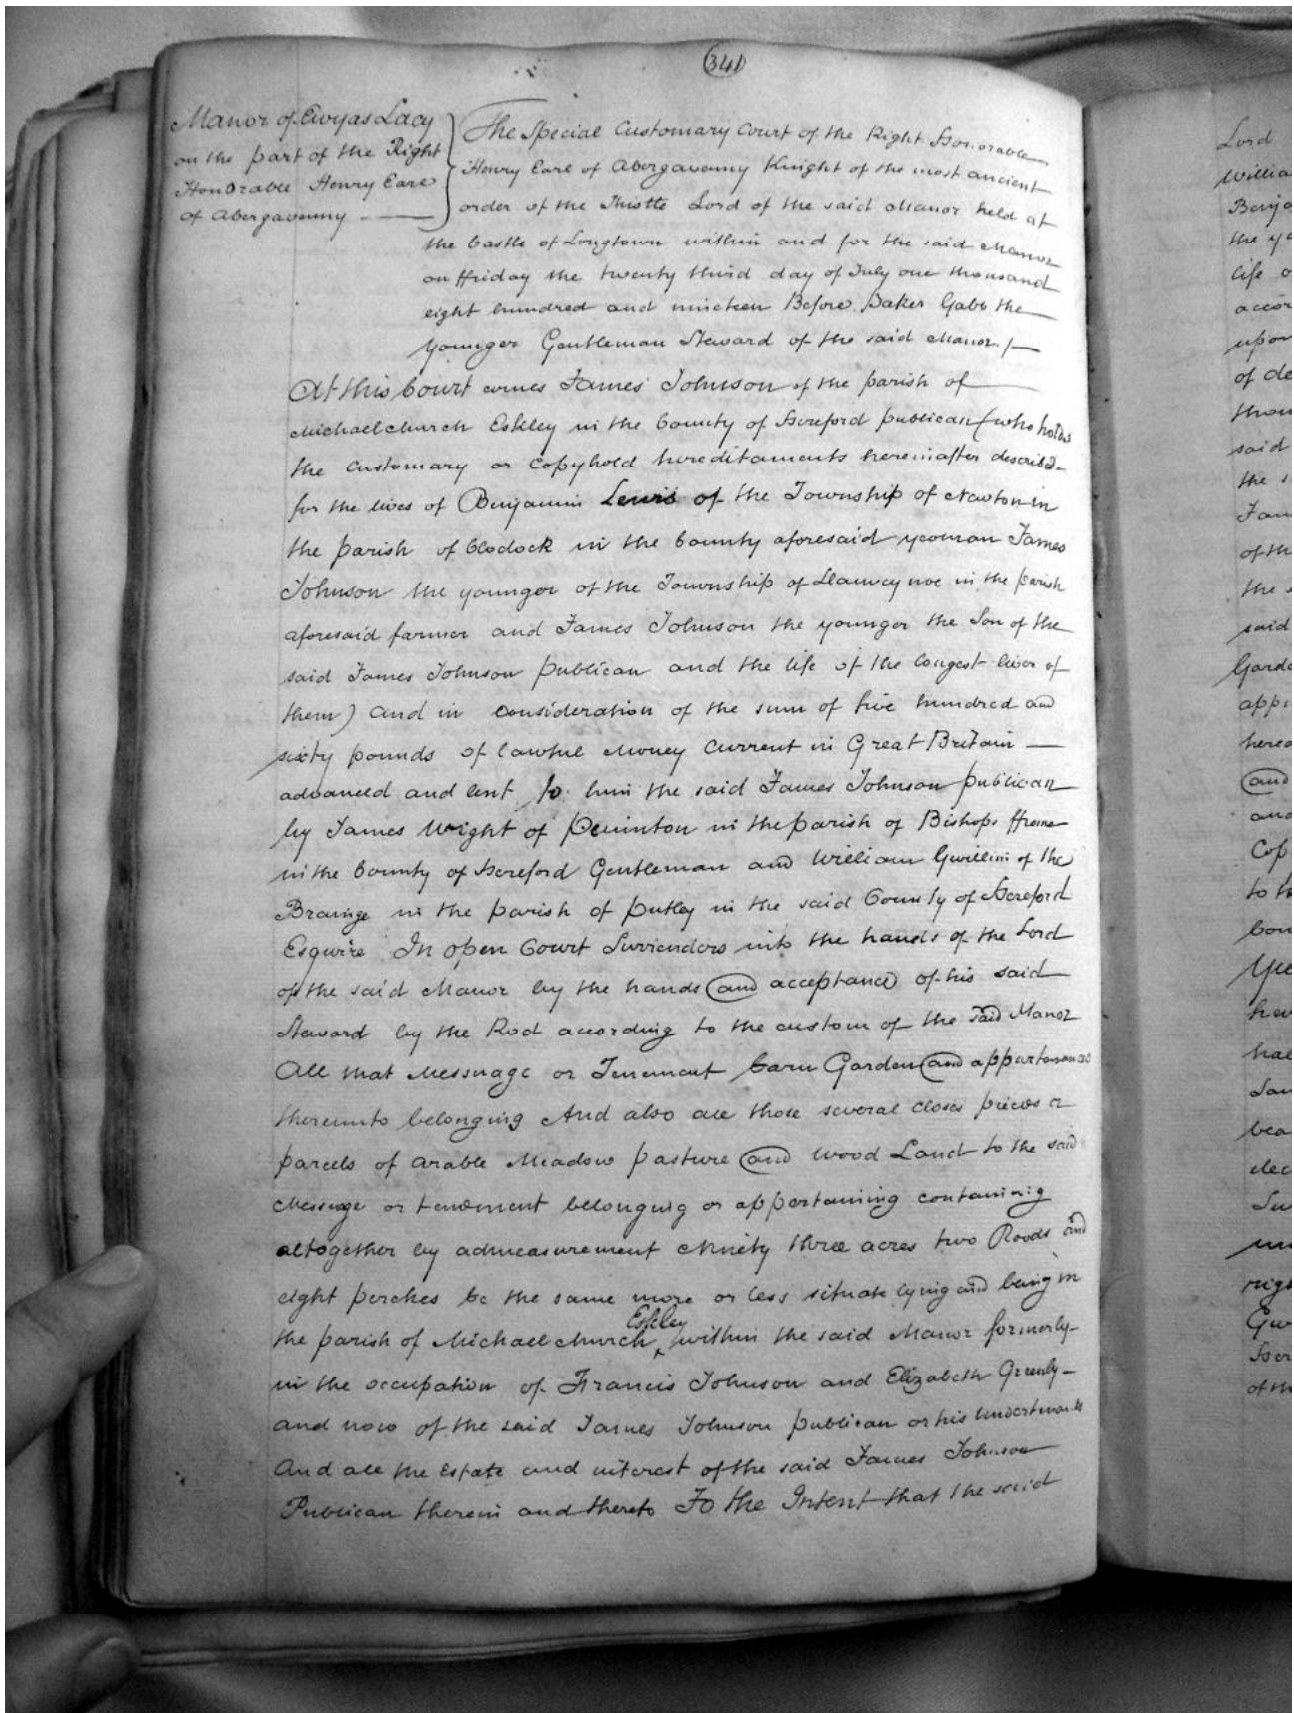 341
Manor of Ewyas Lacy
on the part of the Right
Honorable Henry Earl
of Abergavenny
The Special Customary Court of the Right Honorable
Henry Earl of Abergavenny Knight of the most ancient
order of the Thistle Lord of the said Manor held at
the Castle of Longtown within and for the said Manor
on ffriday the twenty third day of July one thousand
eight hundred and nineteen Before Baker Gabb the
younger Gentleman Steward of the said Manor /
At this Court comes James Johnson of the parish of
Michaelchurch Eskley in the County of Hereford publican (who holds
the customary or copyhold hereditaments hereinafter described
for the lives of Benjamin Lewis of the Township of Newton in
the parish of Clodock in the County aforesaid yeoman James
Johnson the younger of the Township of Llanveynoe in the parish
aforesaid farmer and James Johnson the younger the Son of the
said James Johnson publican and the life of the longest liver of
them) and in consideration of the sum of five hundred and
sixty pounds of lawful Money current in Great Britain
advanced and lent to him the said James Johnson publican
by James Wight of in the parish of Bishops ffrome
in the County of Hereford Gentleman and William Gwillim of the
Brainge in the parish of putley in the said County of Hereford
Esquire In open Court Surrenders into the hands of the Lord
of the said Manor by the hands and acceptance of his said
Steward by the Rod according to the custom of the said Manor
All that Messuage or Tenement barn Garden and appurtenances
thereunto belonging And also all those several closes pieces or
parcels of arable Meadow pasture and wood Land to the said
Messuage or tenement belonging or appertaining containing
altogether by admeasurement Ninety three acres two Roods and
eight perches be the same more or less situate lying and being in
the parish of Michaelchurch ^ Eskley within the said Manor formerly
in the occupation of Francis Johnson and Elizabeth Greenly
and now of the said James Johnson publican or his undertenants
And all the Estate and interest of the said James Johnson
Publican therein and thereto To the Intent that the said
Lord
the
life
of de
said
the
of th
the
said
hereo
and
Cop
to th